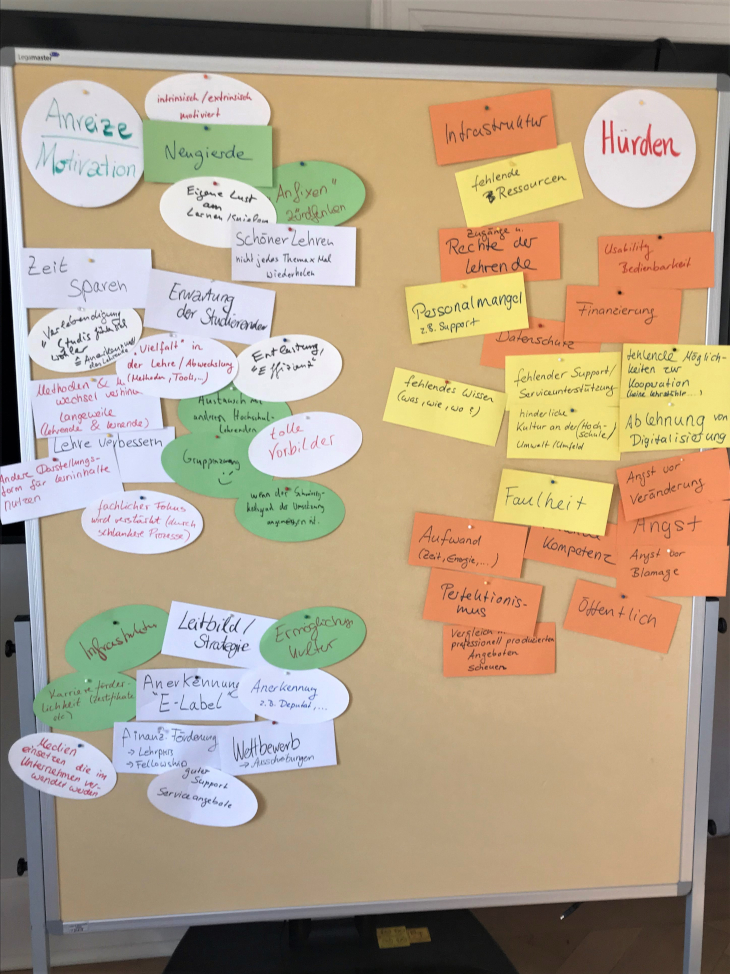 Legamaster
Anreize
Motivation
intrinsisch/extrinsisch
motiviert
Neugierde
Eigene Lust
am
Lernen/
"Anfixen"
Schöner Lehren
nicht jedes Thema x Mal
wiederholen
Zeit
sparen
Erwartung
der Studierenden
"Verlebendigung"
Studis
"Vielfalt" in
der Lehre/Abwechslung
(Methoden, Tools,...)
Entlastung,
"Effizienz"
Methoden &
wechsel
langeweile
(lehrende & lernende)
Austausch mit
anderen Hochschul-
Lehrenden
tolle
Vorbilder
Lehre verbessern
Gruppenzwang
Andere Darstellungs-
form für lerninhalte
nutzen
fachlicher Fokus
wird verstärkt (durch
schlankere Prozesse)
wenn der Schwierig-
keitsgrad der Umsetzung
angemessen ist.
Infrastruktur
Leitbild/
Strategie
Ermöglichungs
kultur
Karriereförder-
lichkeit (Zertifikate
etc)
Anerkennung
"E-Label"
Anerkennung
z.B. Deputat,...
Medien
einsetzen die im
Unternehmen ver-
wendet werden
Finanz. Förderung
→ Lehrpreis
→ Fellowship
Wettbewerb
→ Ausschreibungen
guter
Support
Serviceangebote
Hürden
Infrastruktur
fehlende
Ressourcen
Zugänge u.
Rechte der
Lehrende
Usability
Bedienbarkeit
Personalmangel
z.B. Support
Finanzierung
Datenschutz
fehlendes Wissen
(was, wie, wo?)
fehlender Support/
Serviceunterstützung
fehlende Möglich-
keiten zur
Kooperation
hinderliche
Kultur an der (Hoch-
schule)
Umwelt/Umfeld
Ablehnung von
Digitalisierung
Faulheit
Angst vor
Veränderung
Aufwand
(Zeit, Energie,...)
Kompetenz
Angst
Angst vor
Blamage
Perfektionis-
mus
Öffentlich
Vergleich
professionell produzierten
Angeboten
scheuen